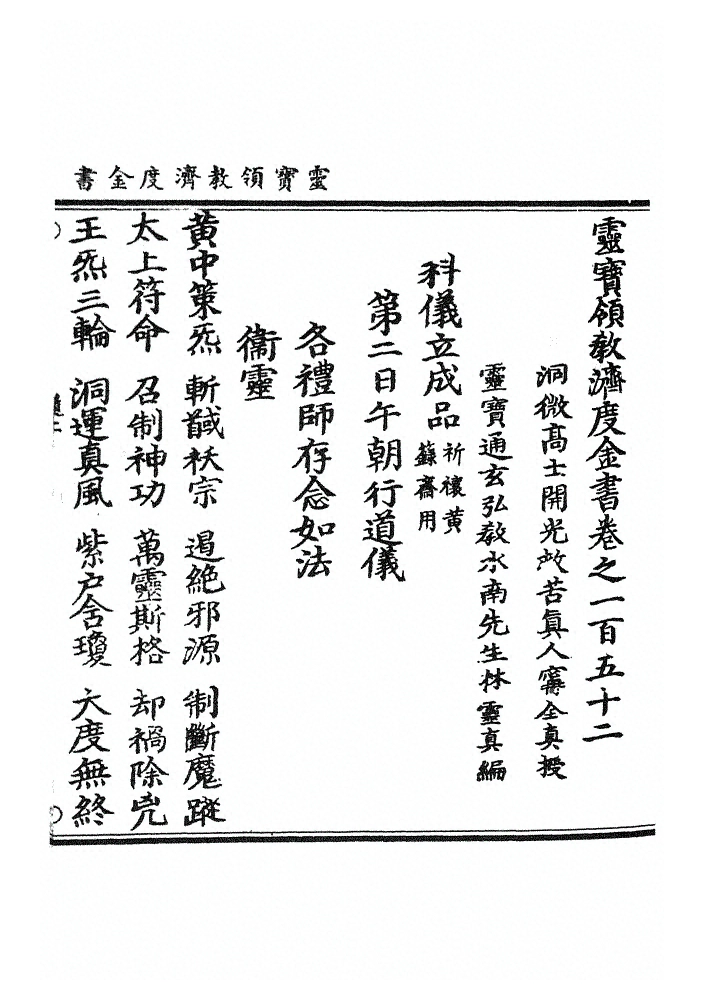 靈寶領教濟度金書
靈寶領教濟度金書卷之一百五十二
洞微高士開光救苦真人甯全真授
靈寶通玄弘教水南先生林靈真編
科儀立成品 祈禳黄
籙齋用
第二日午朝行道儀
各禮師存念如法
衞靈
黄中策炁 斬馘袄宗 遏絶邪源 制斷魔蹤
太上符命 召制神功 萬靈斯格 却禍除兇
王炁三輪 洞運真風 紫户含瓊 大度無終